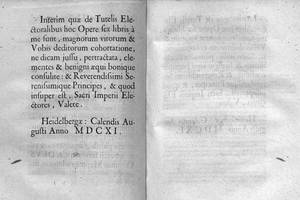 Interim quæ de Tutelis Ele-
ctoralibus hoc Opere sex libris à
me sunt, magnorum virorum &
Vobis deditorum cohortatione,
ne dicam jussu, pertractata, cle-
mentes & benigni æqui bonique
consulite: & Reverendissimi Se-
renissimique Principes, & quod
insuper est, Sacri Imperii Ele-
ctores, Valete.
Heidelbergæ: Calendis Au-
gusti Anno MDCXI.